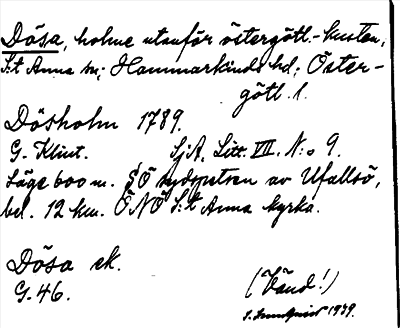 Dösa, holme utanför östergötl.-kusten,
S:t Anna sn; Hammarkinds hd; Öster-
götl. l.
Dösholm 1789.
G. Klint. SjA, Litt. VIII. N:o 9.
Läge 600 m. SÖ sydspetsen av Ufallsö,
bel. 12 km. ÖNÖ S:t Anna kyrka.
Dösa ek.
G. 46.
(Vänd!)
1939.